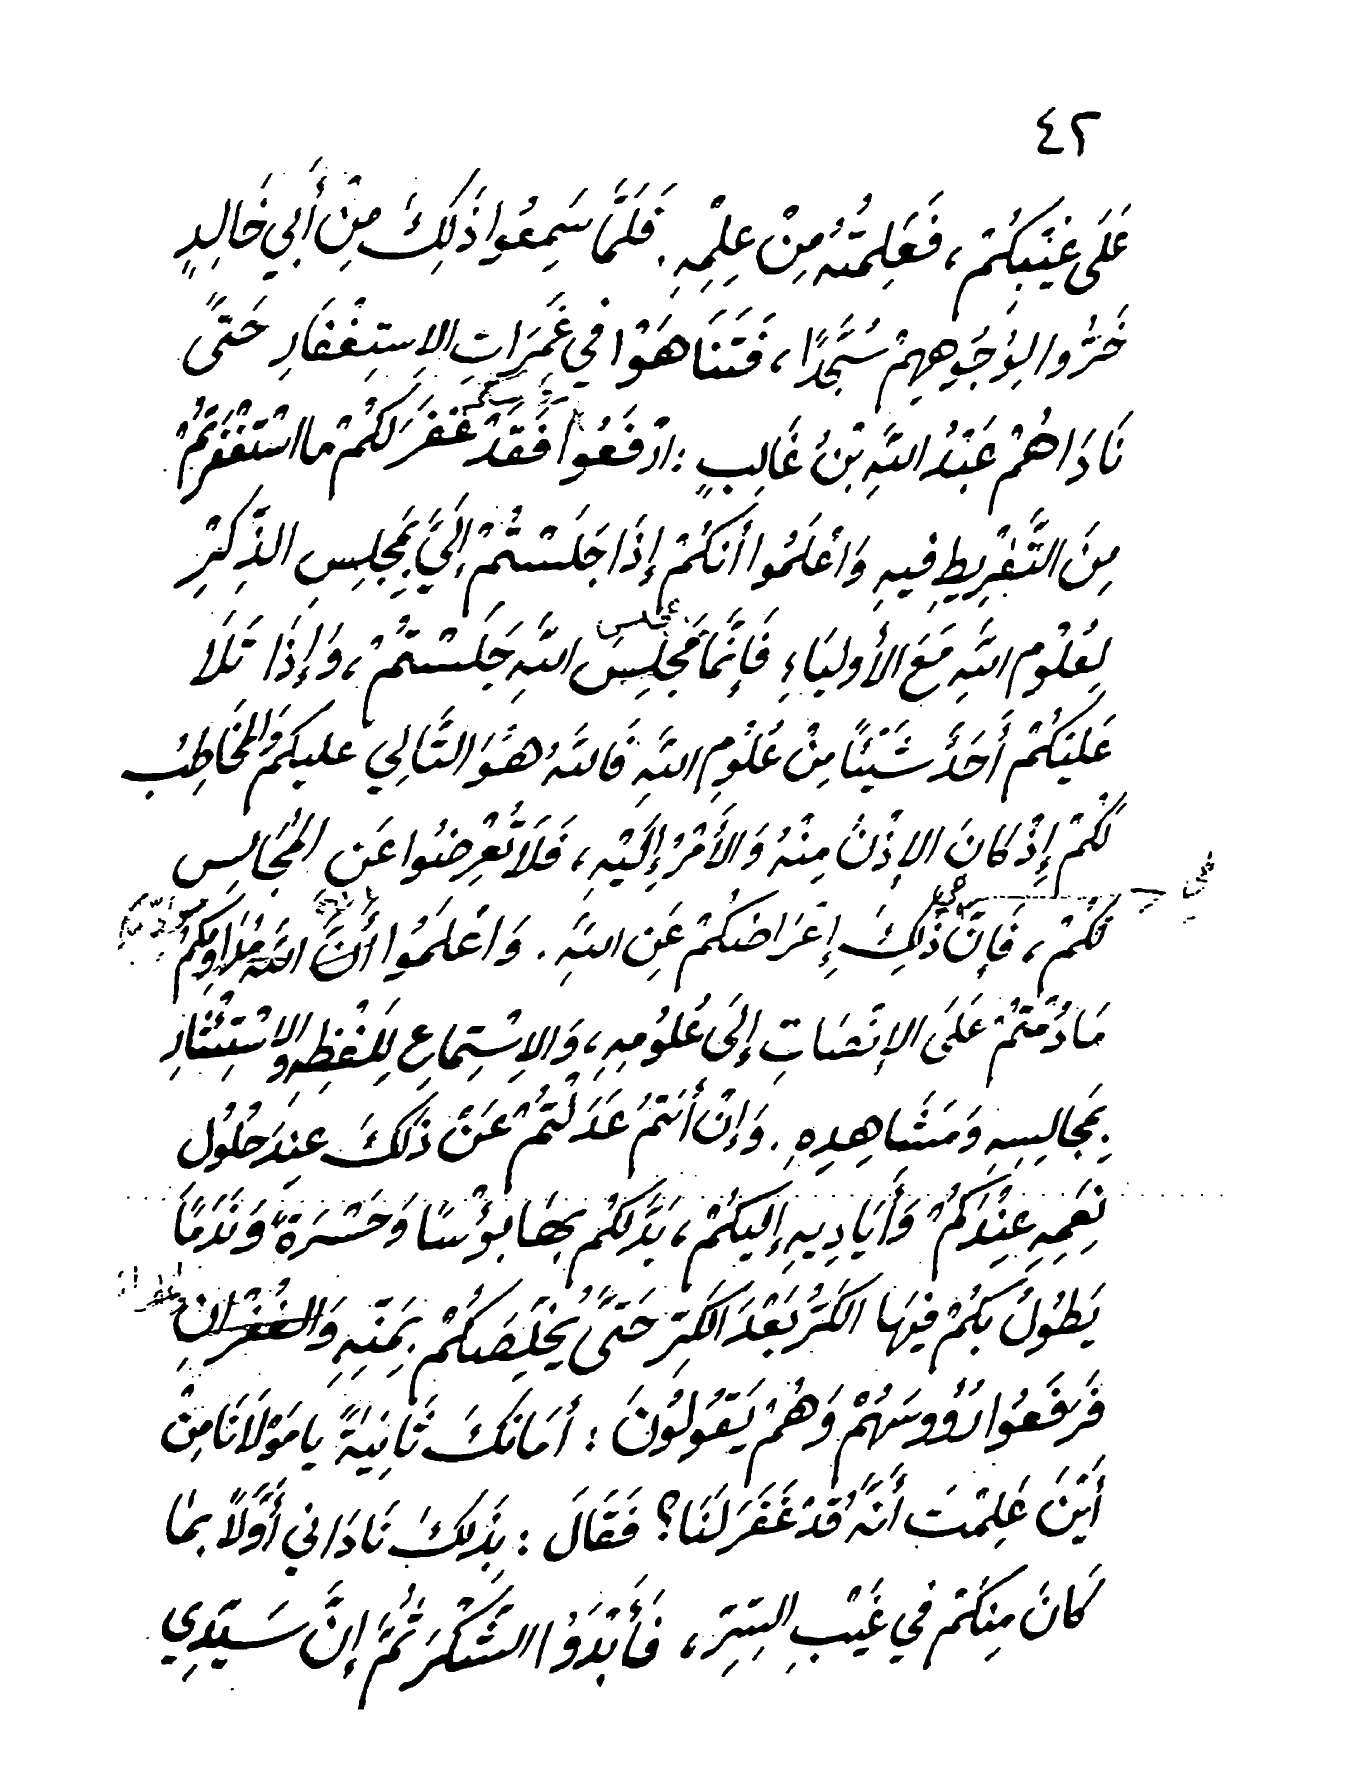 ٤٢
عَلَى غَيْبِكُمْ، فَعَلِمْتُهُ مِنْ عِلْمِهِ. فَلَمَّا سَمِعُوا ذَلِكَ مِنْ أَبِي خَالِدٍ
خَرُّوا لِوُجُوهِهِمْ سُجَّدًا، فَتَنَاهَوْا فِي غَمَرَاتِ الِاسْتِغْفَارِ حَتَّى
نَادَاهُمْ عَبْدُ اللَّهِ بْنُ غَالِبٍ: ارْفَعُوا فَقَدْ غَفَرَ لَكُمْ مَا اسْتَغْفَرْتُمْ
مِنَ التَّفْرِيطِ فِيهِ وَاعْلَمُوا أَنَّكُمْ إِذَا جَلَسْتُمْ إِلَيَّ بِمَجْلِسِ الذِّكْرِ
لِعُلُومِ اللَّهِ مَعَ الأَوْلِيَاءِ فَإِنَّمَا مَجْلِسَ اللَّهِ جَلَسْتُمْ، وَإِذَا تَلَا
عَلَيْكُمْ أَحَدٌ شَيْئًا مِنْ عُلُومِ اللَّهِ فَاللَّهُ هُوَ التَّالِي عَلَيْكُمْ وَالْمُخَاطِبُ
لَكُمْ إِذْ كَانَ الإِذْنُ مِنْهُ وَالأَمْرُ إِلَيْهِ، فَلَا تُعْرِضُوا عَنِ الْمُجَالِسِ
لَكُمْ، فَإِنَّ ذَلِكَ إِعْرَاضُكُمْ عَنِ اللَّهِ. وَاعْلَمُوا أَنَّ اللَّهَ مُدَاوِيكُمْ
مَا دُمْتُمْ عَلَى الإِنْصَاتِ إِلَى عُلُومِهِ، وَالِاسْتِمَاعِ لِلَفْظِهِ وَالِاسْتِئْثَارِ
بِمَجَالِسِهِ وَمَشَاهِدِهِ. وَإِنْ أَنْتُمْ عَدَلْتُمْ عَنْ ذَلِكَ عِنْدَ حُلُولِ
نِعَمِهِ عِنْدَكُمْ وَأَيَادِيهِ إِلَيْكُمْ، بَدَّلَكُمْ بِهَا بُؤْسًا وَحَسْرَةً وَنَدَمًا
يَطُولُ بِكُمْ فِيهَا الْكَرُّ بَعْدَ الْكَرِّ حَتَّى يُخَلِّصَكُمْ بِمَنِّهِ وَالْغُفْرَانِ
فَرَفَعُوا رُؤُوسَهُمْ وَهُمْ يَقُولُونَ: أَمَانَكَ ثَانِيَةً يَا مَوْلَانَا مِنْ
أَيْنَ عَلِمْتَ أَنَّهُ قَدْ غَفَرَ لَنَا؟ فَقَالَ: بِذَلِكَ نَادَانِي أَوَّلًا بِمَا
كَانَ مِنْكُمْ فِي غَيْبِ السِّتْرِ، فَأَبْدَوُا الشُّكْرَ ثُمَّ إِنَّ سَيِّدِي